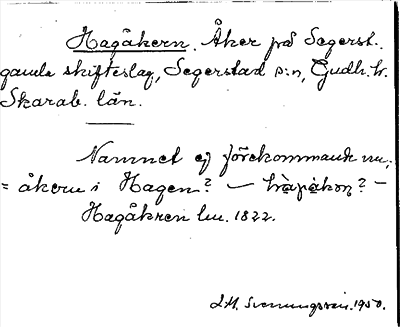 Hagåkern. Åker på Segerst.
gamla skifteslag, Segerstad s:n, Gudh. h.
Skarab. län.
Namnet ej förekommande nu,
= åkern i Hagen? —
Hagåkren lm. 1822.
J.M. Svenungsson. 1950.